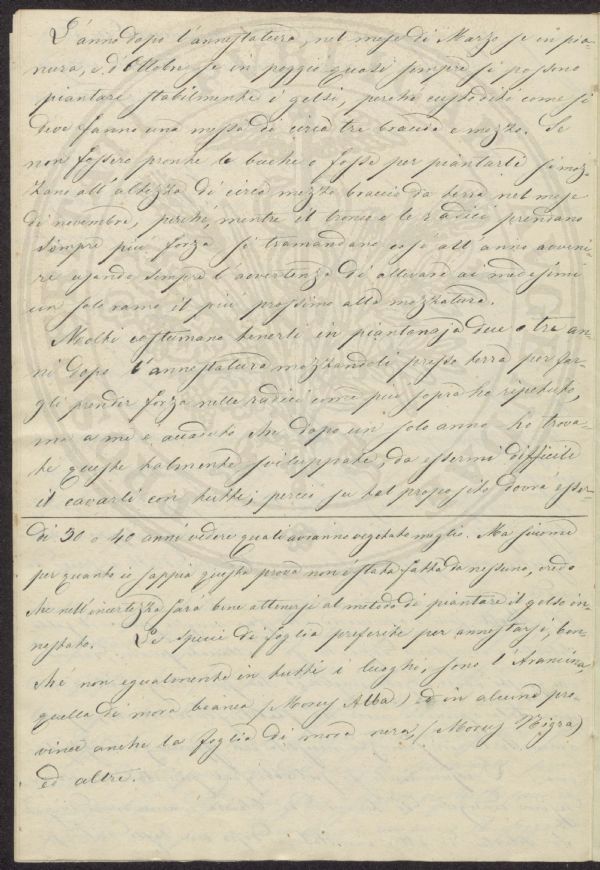 L'anno dopo l'annestatura, nel mese di Marzo se in pia-
nura, e d'Ottobre se in poggio quasi sempre si possono
piantare stabilmente i gelsi, perchè custoditi come si
deve fanno una messa di circa tre braccia e mezzo. Se
non fossero pronte le buche o fosse per piantarli si moz-
zano all'altezza di circa mezzo braccio da terra nel mese
di novembre, perchè, mentre il tronco e le radici prendano
sempre più forza si tramandano così all'anno avveni-
re usando sempre l'avvertenza di allevare ai medesimi
un solo ramo il più prossimo alla mozzatura.
Molti costumano tenerli in piantonaja due o tre an-
ni dopo l'annestatura mozzandoli presso terra per far-
gli prender forza nelle radici come più sopra ho ripetuto,
ma a me è accaduto che dopo un solo anno ho trova-
te queste talmente sviluppate, da essermi difficile
il cavarli con tutte; perciò su tal proposito dovrà esser-
di 30 o 40 anni vedere quali avranno vegetato meglio. Ma siccome
per quanto io sappia questa prova non è stata fatta da nessuno, credo
che nell'incertezza sarà bene attenersi al metodo di piantare il gelso in-
nestato. Le specie di foglia preferite per annestarsi, ben-
chè non egualmente in tutti i luoghi, sono l'Arancina,
quella di mora bianca (Morus Alba) ed in alcune pro-
vince anche la foglia di mora nera, (Morus Nigra)
ed altre.